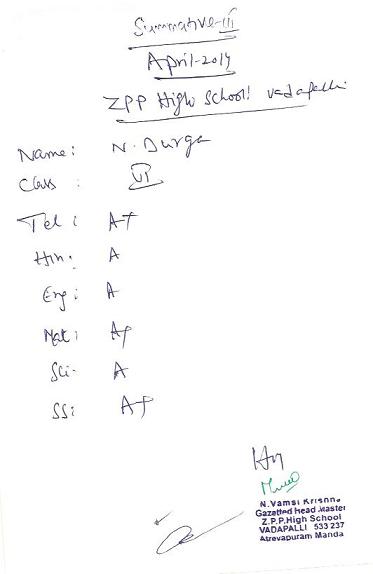 Summative-III
April-2014
ZPP High School: Vadapalli
Name: N. Durga
Class: VI
Tel: A+
Hin: A
Eng: A
Mat: A+
Sci- A
SS: A+
N.Vamsi Krishna
Gazetted Head Master
Z.P.P.High School
VADAPALLI 533 237
Atreyapuram Manda